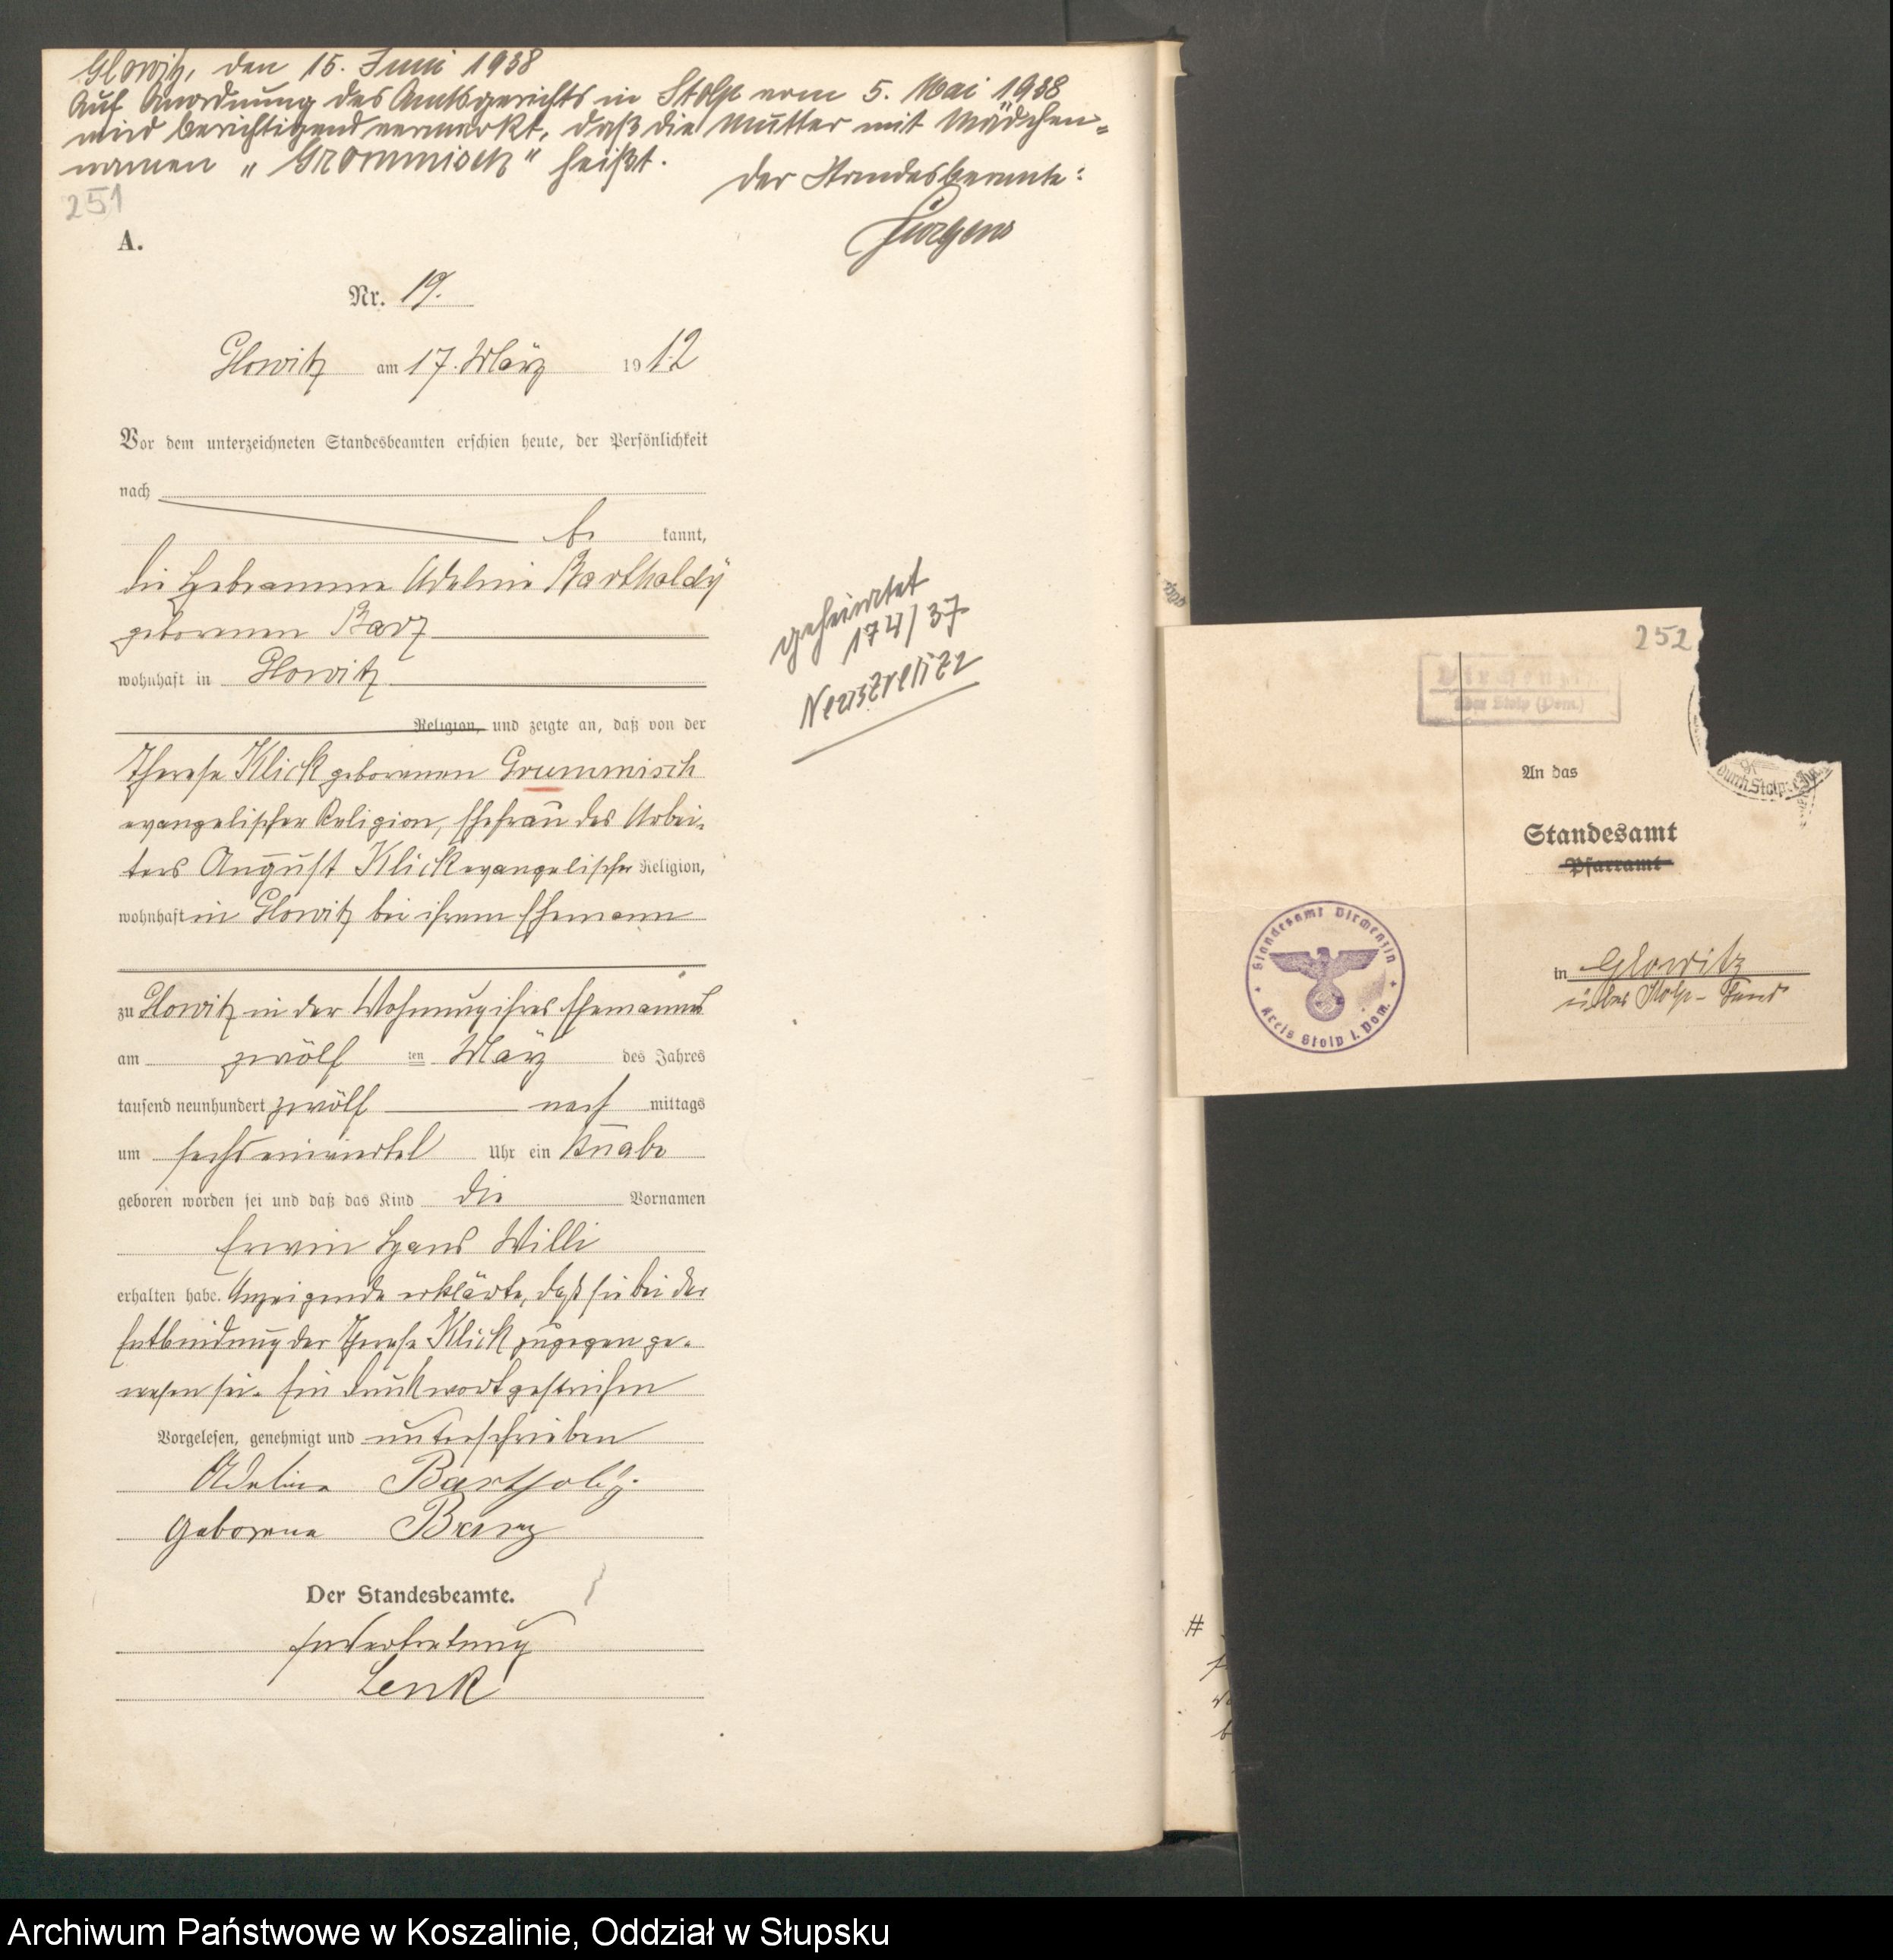 Glowitz, den 15. Juni 1938
Auf Anordnung des Amtsgerichts in Stolp vom 5. Mai 1938
wird berichtigend vermerkt, daß die Mutter mit Mädchen-
namen „Grommisch" heißt.
Der Standesbeamte:
251
A.
Nr. 19.
Glowitz am 17. März 1912
Vor dem unterzeichneten Standesbeamten erschien heute, der Persönlichkeit
nach
be kannt,
die Hebeamme Adeline Bartholdy
geborenen Barz
wohnhaft in Glowitz
Religion, und zeigte an, daß von der
Therese Klick geborenen Grummisch
evangelischer Religion, Ehefrau des Arbei-
ters August Klick evangelischer Religion,
wohnhaft in Glowitz bei ihrem Ehemann
zu Glowitz in der Wohnung ihres Ehemannes
am zwölf ten März des Jahres
tausend neunhundert zwölf nach mittags
um sechseinviertel Uhr ein Knabe
geboren worden sei und daß das Kind die Vornamen
Erwin Hans Willi
erhalten habe. Anzeigende erklärte, daß sie bei der
Entbindung der Therese Klick zugegen ge-
wesen sei. Ein Druckwort gestrichen
Vorgelesen, genehmigt und unterschrieben
Adeline Bartholdy.
Geborene Barz
Der Standesbeamte.
In Vertretung
Lenk
geheiratet
174/37
Neustrelitz
252
über Stolp (Pom.)
An das
Standesamt
Pfarramt
in Glowitz
über Stolp - Land
Standesamt Virchenzin
Kreis Stolp i. Pom.
durch Stolp
#
Archiwum Państwowe w Koszalinie, Oddział w Słupsku